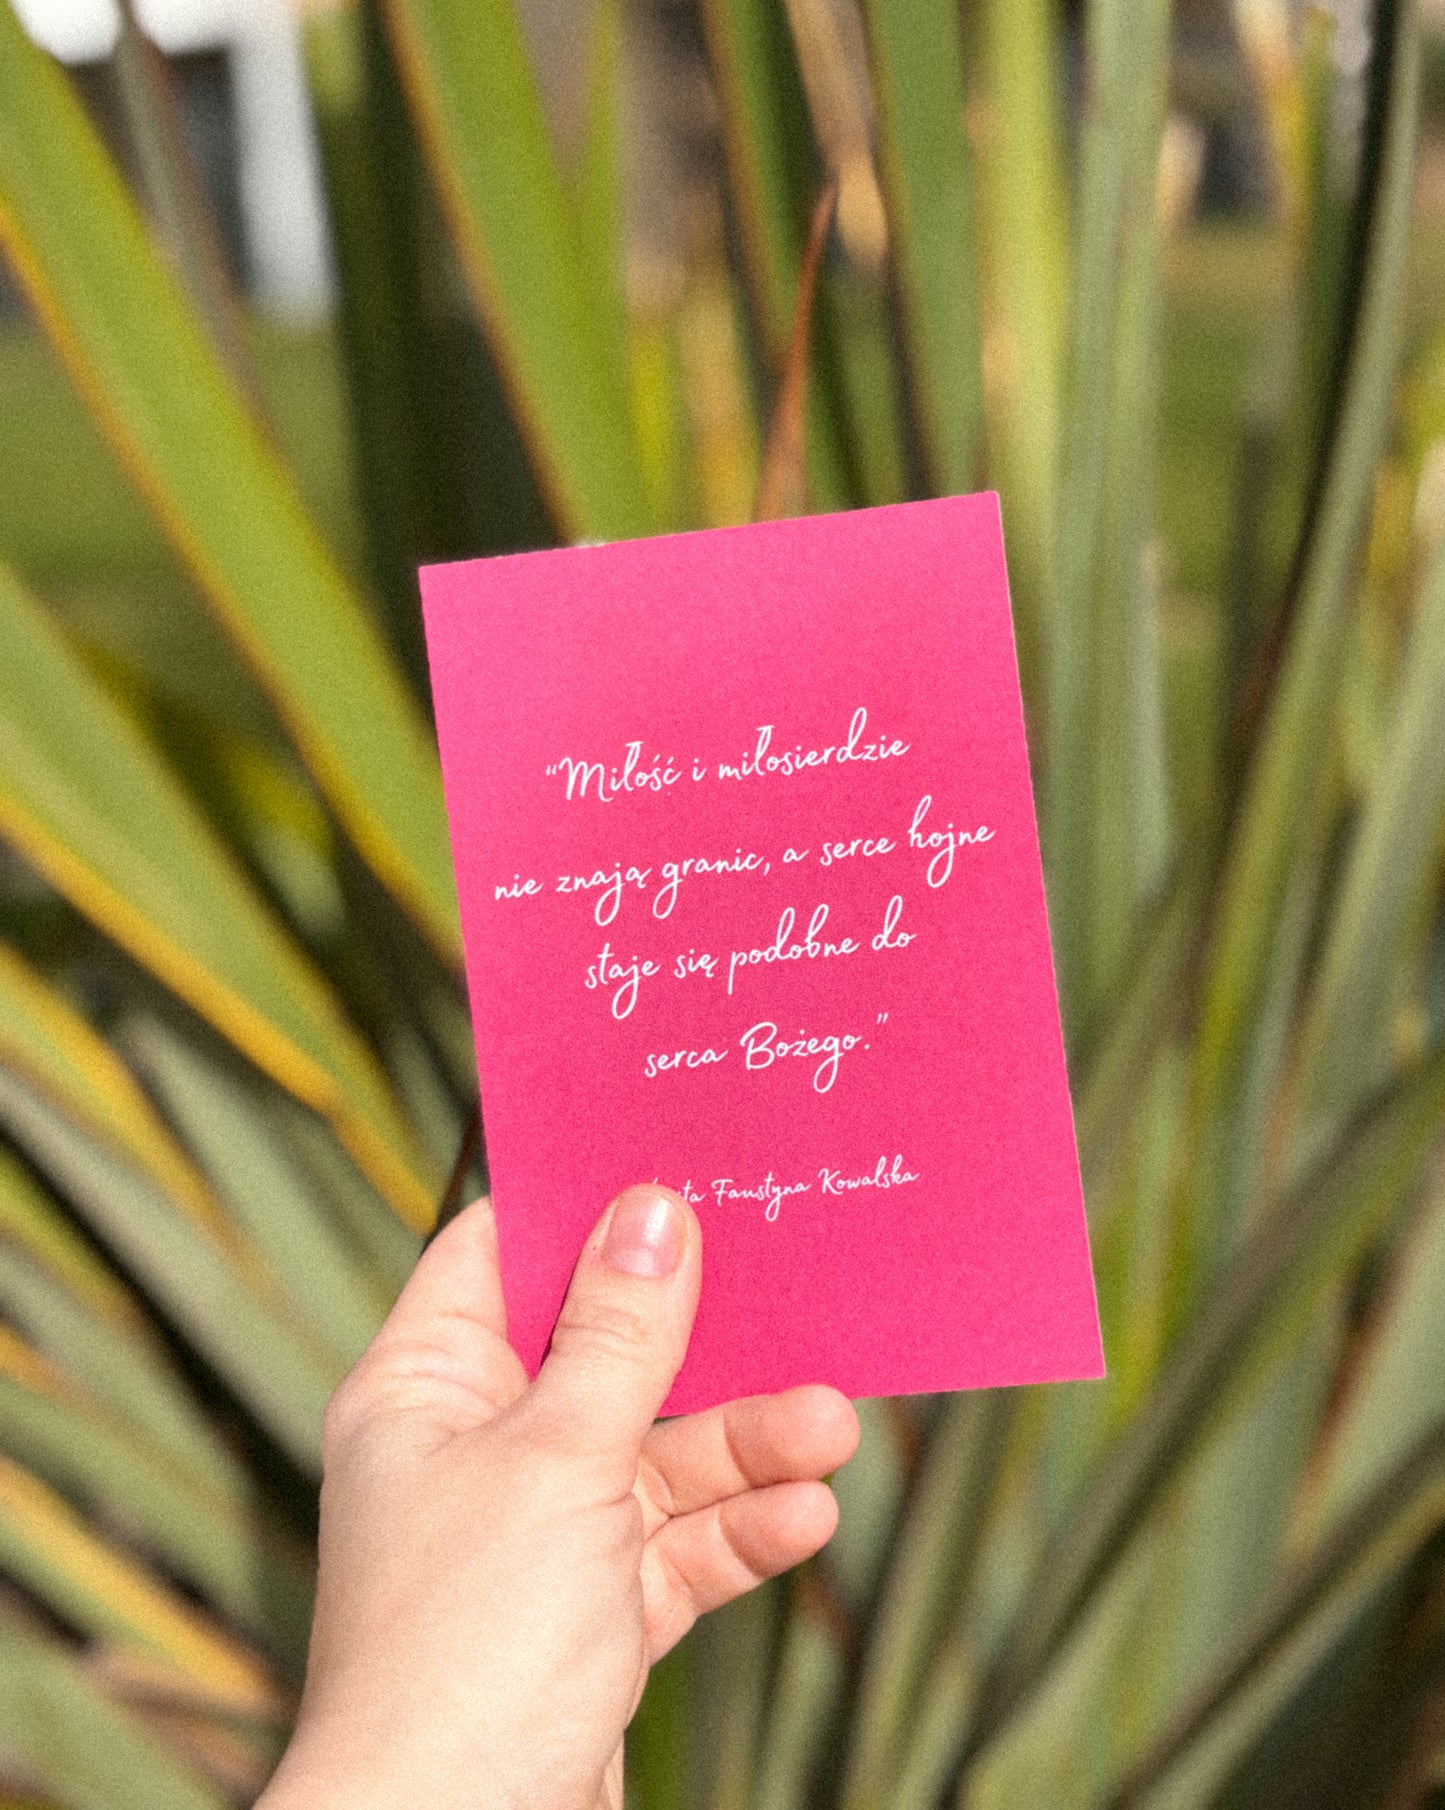 “Miłość i miłosierdzie
nie znają granic, a serce hojne
staje się podobne do
serca Bożego.”
Faustyna Kowalska